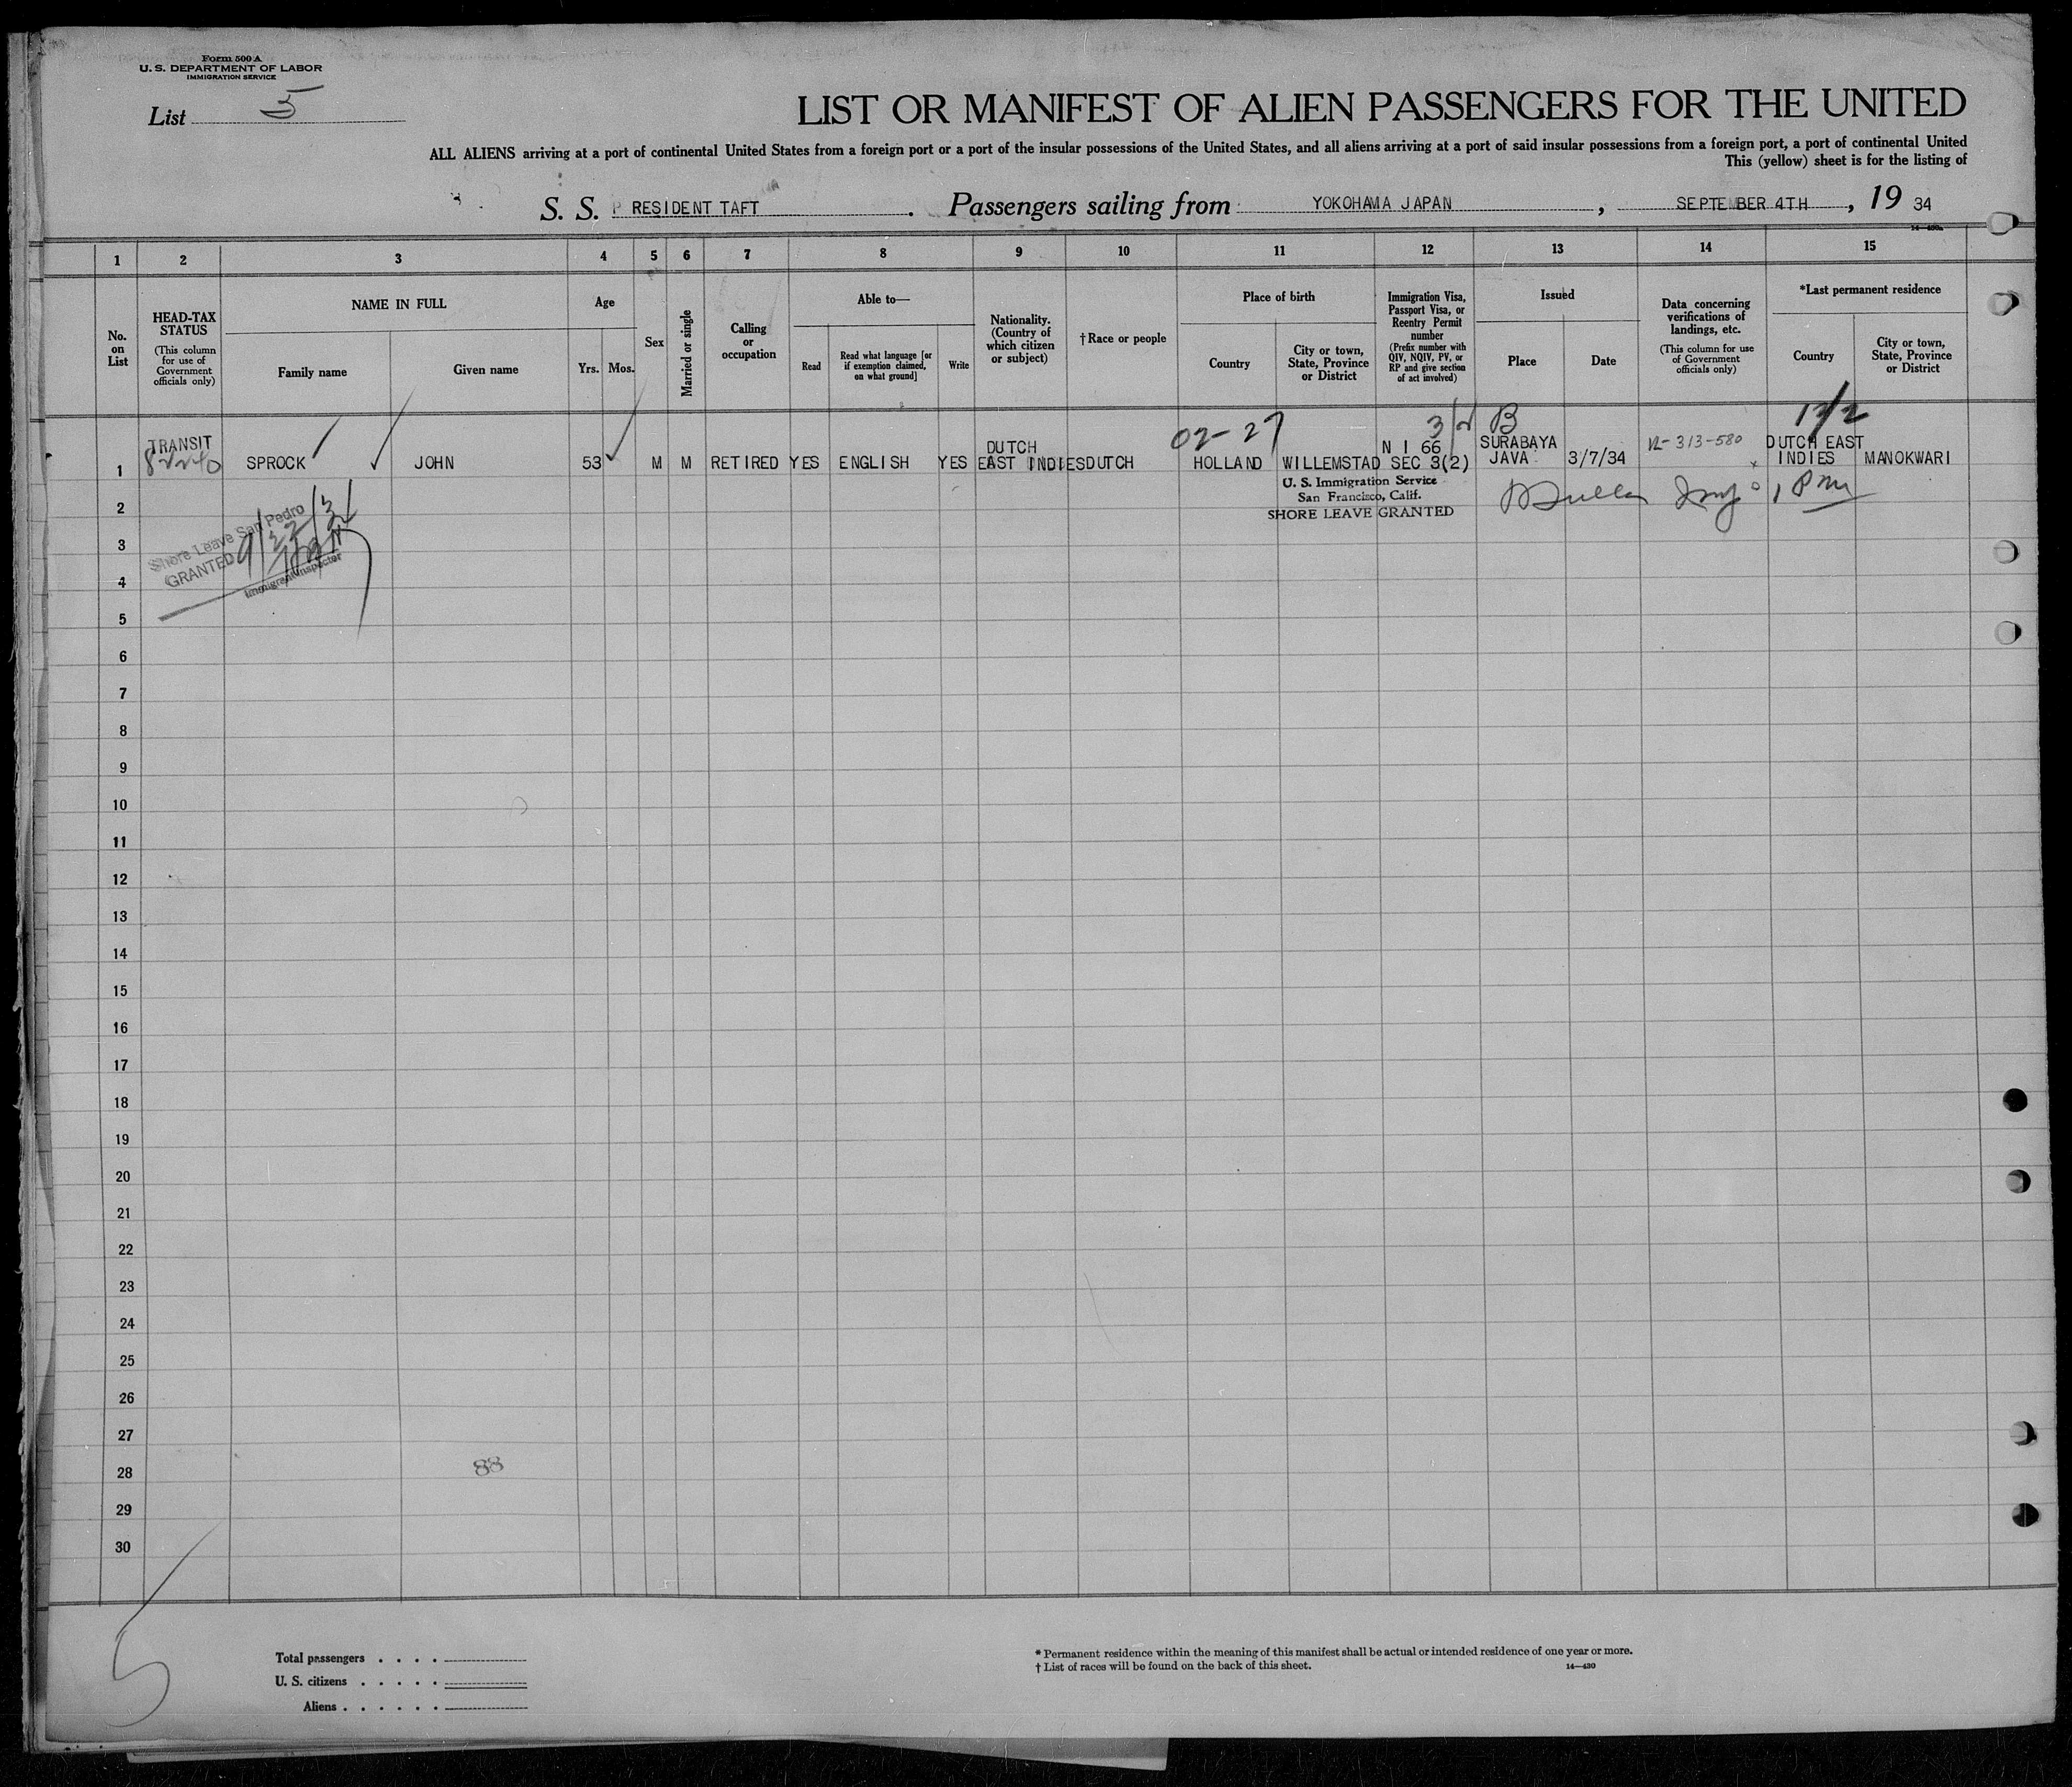 Form 500 A
U. S. DEPARTMENT OF LABOR
IMMIGRATION SERVICE
List 5
LIST OR MANIFEST OF ALIEN PASSENGERS FOR THE UNITED
ALL ALIENS arriving at a port of continental United States from a foreign port or a port of the insular possessions of the United States, and all aliens arriving at a port of said insular possessions from a foreign port, a port of continental United
This (yellow) sheet is for the listing of
S. S. P RESIDENT TAFT . Passengers sailing from YOKOHAMA JAPAN , SEPTEMBER 4TH , 19 34
1 2 3 4 5 6 7 8 9 10 11 12 13 14 15
No. on List
HEAD-TAX STATUS
(This column for use of Government officials only)
NAME IN FULL
Family name
Given name
Age
Yrs. Mos.
Sex
Married or single
Calling or occupation
Able to—
Read
Read what language [or if exemption claimed, on what ground]
Write
Nationality. (Country of which citizen or subject)
† Race or people
Place of birth
Country
City or town, State, Province or District
Immigration Visa, Passport Visa, or Reentry Permit number
(Prefix number with QIV, NQIV, PV, or RP and give section of act involved)
Issued
Place
Date
Data concerning verifications of landings, etc.
(This column for use of Government officials only)
*Last permanent residence
Country
City or town, State, Province or District
02-27 B
TRANSIT DUTCH N I 66 SURABAYA 12-313-580 DUTCH EAST
1 SPROCK JOHN 53 M M RETIRED YES ENGLISH YES EAST INDIES DUTCH HOLLAND WILLEMSTAD SEC 3(2) JAVA 3/7/34 INDIES MANOKWARI
U. S. Immigration Service
San Francisco, Calif.
SHORE LEAVE GRANTED
Shore Leave San Pedro
GRANTED 9/22/34
Immigrant Inspector
2
3
4
5
6
7
8
9
10
11
12
13
14
15
16
17
18
19
20
21
22
23
24
25
26
27
28
29
30
88
5
Total passengers . . . .
U. S. citizens . . . . .
Aliens . . . . . .
* Permanent residence within the meaning of this manifest shall be actual or intended residence of one year or more.
† List of races will be found on the back of this sheet.
14—430